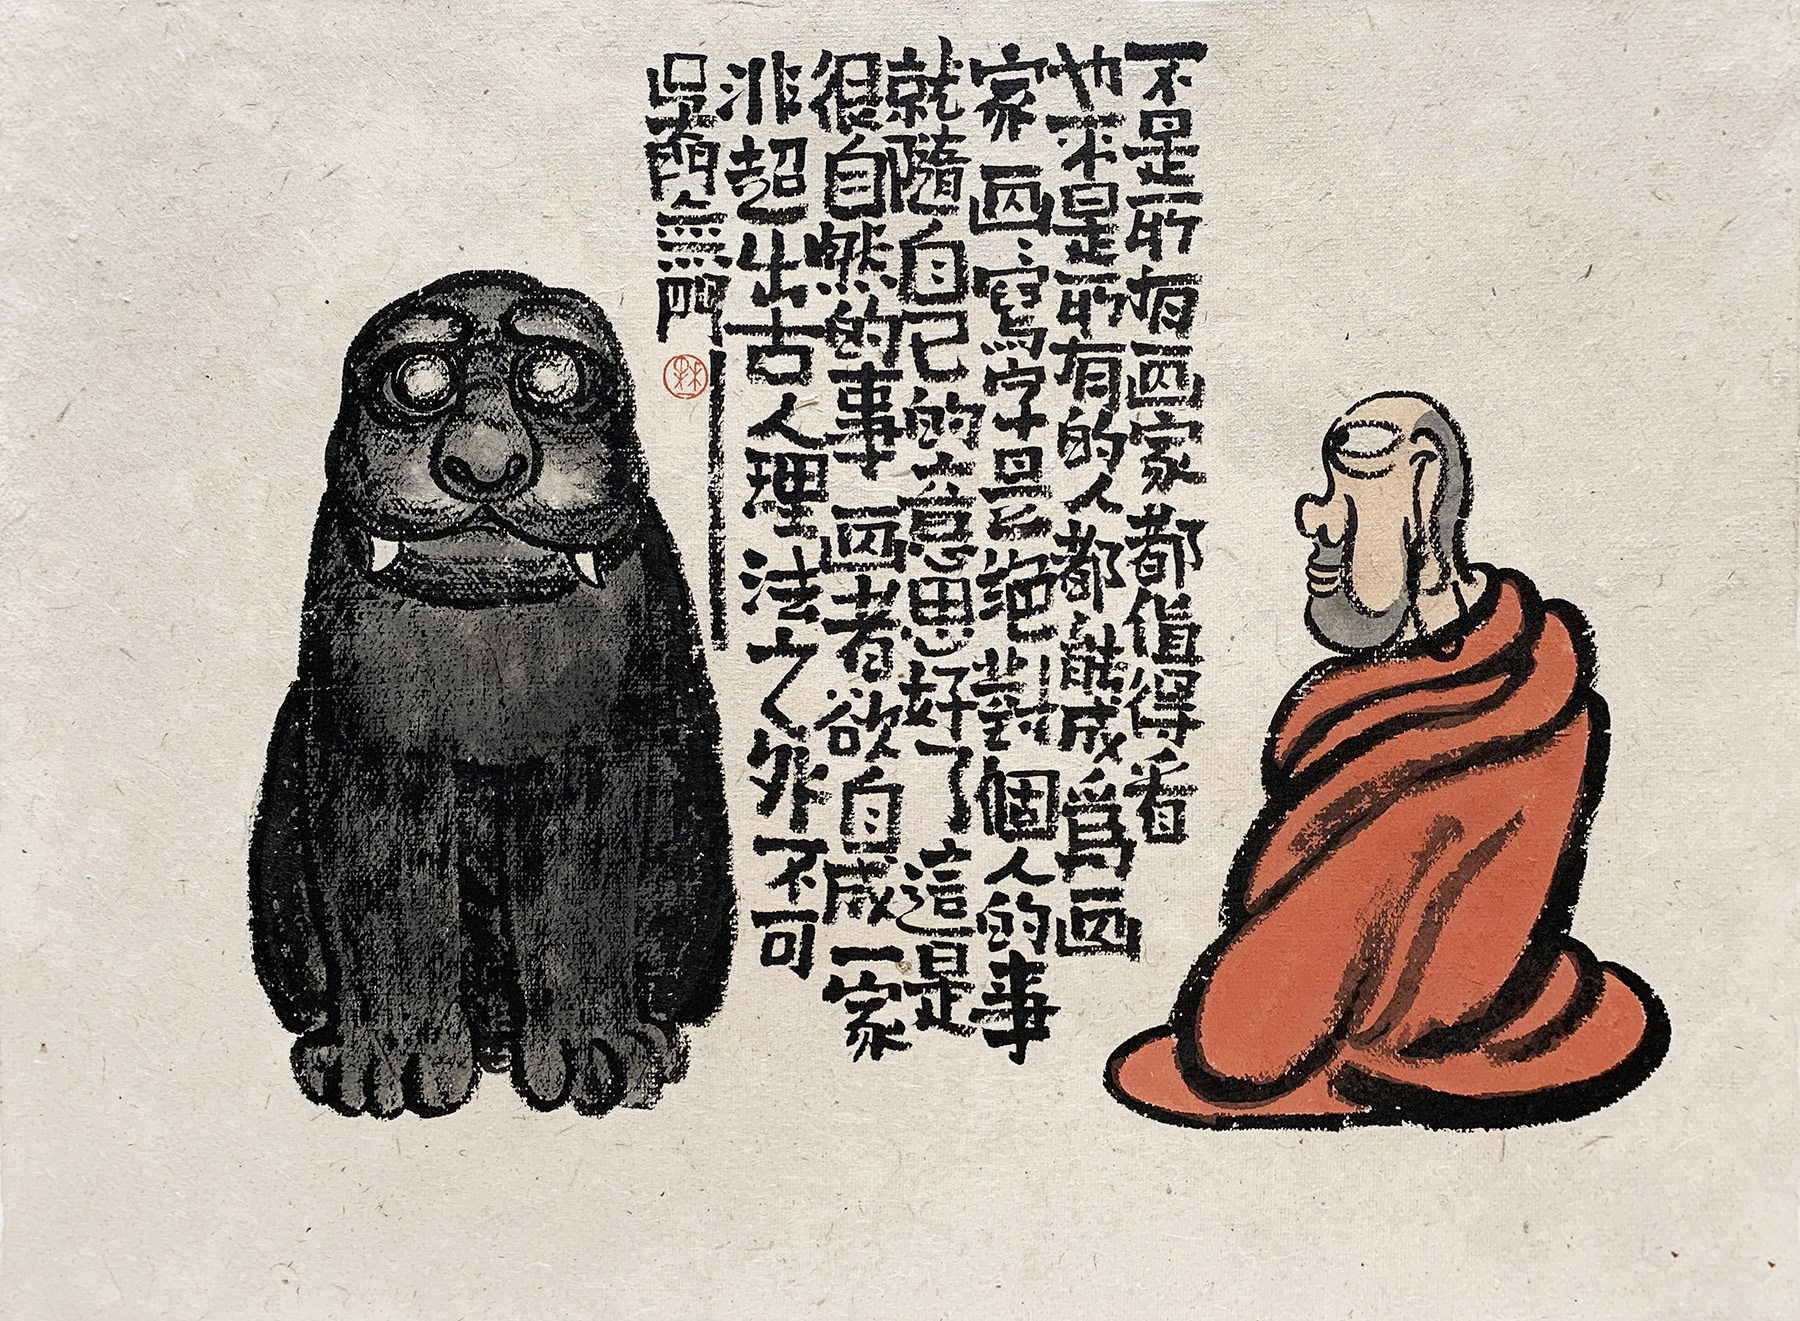 不是所有画家都值得看
也不是所有的人都能成為画
家 画、寫字是絕對個人的事
就隨自己的意思好了 這是
很自然的事 画者欲自成一家
非超出古人理法之外不可
吳門無門